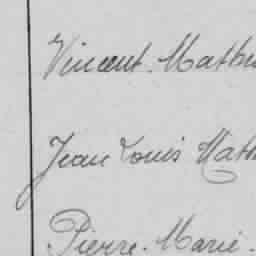 Vincent. Mathu
Jean Louis Math
Pierre. Marie.